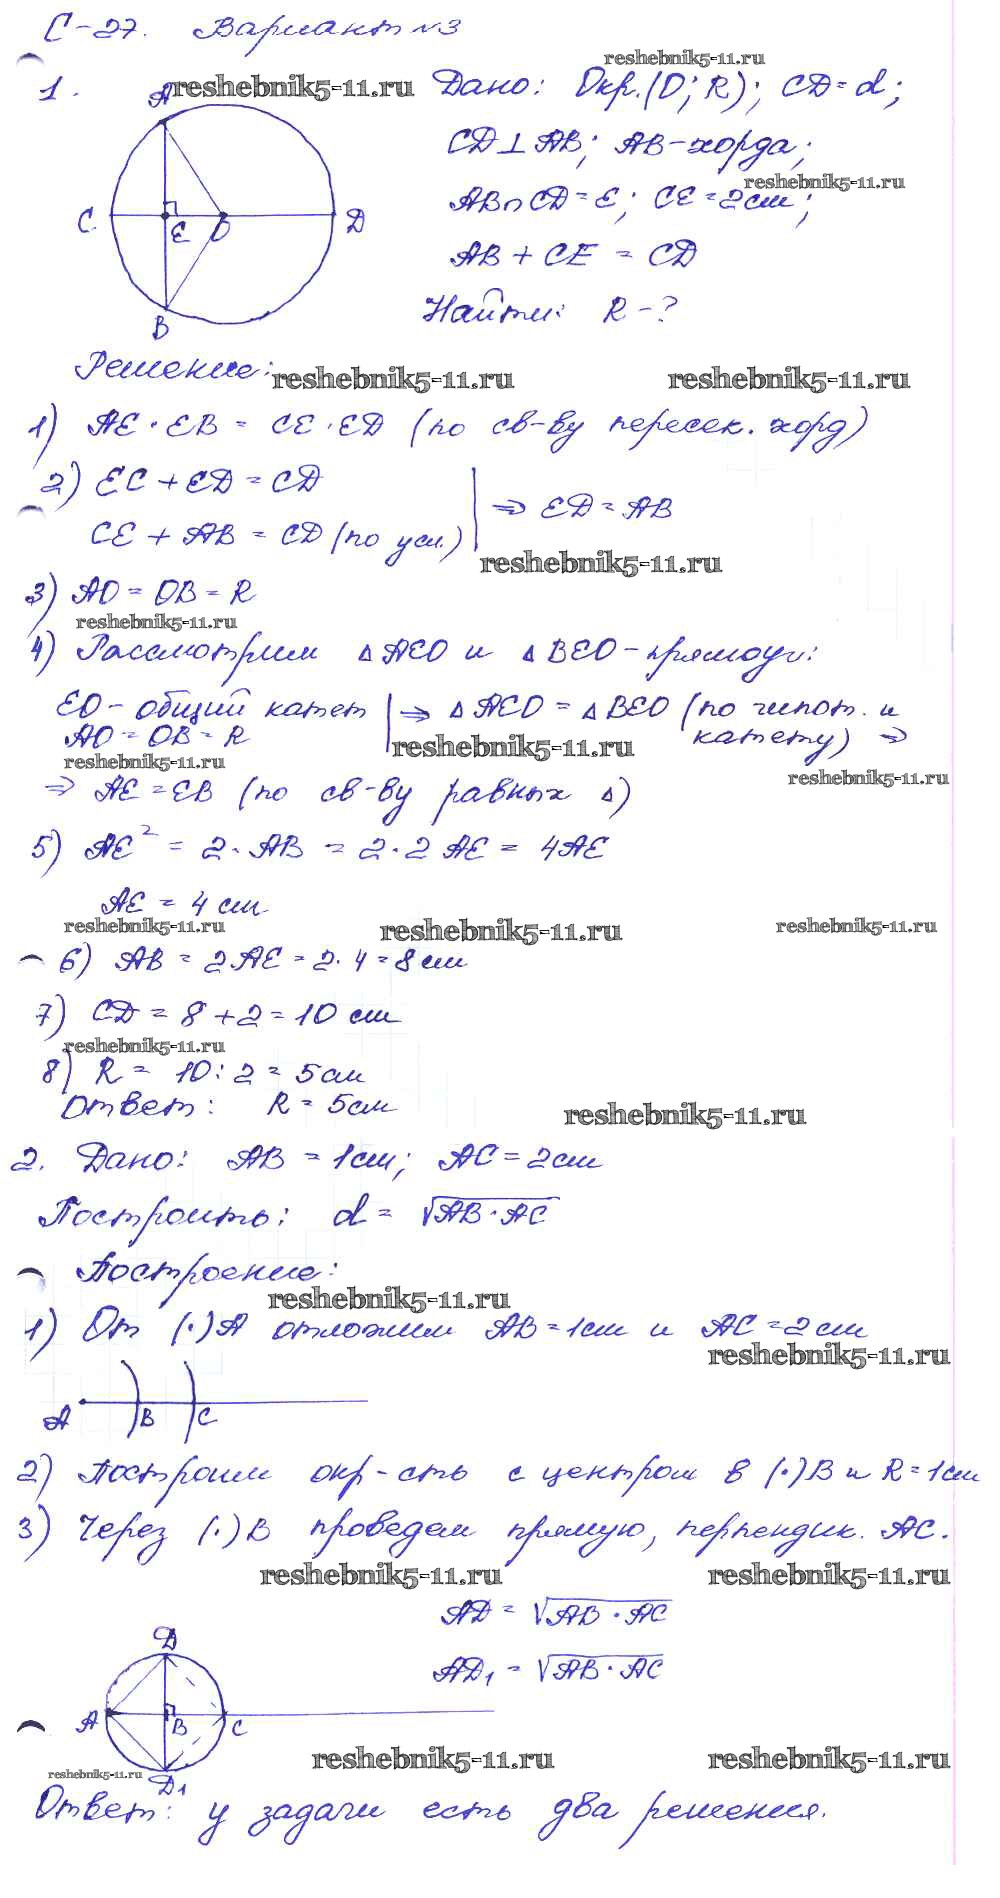 С-27. Вариант №3
reshebnik5-11.ru
1. reshebnik5-11.ru Дано: Окр.(О; R); CD = d;
A
CD ⊥ AB; AB - хорда;
reshebnik5-11.ru
AB ∩ CD = E; CE = 2 см;
C E O D
AB + CE = CD
B
Найти: R - ?
Решение: reshebnik5-11.ru reshebnik5-11.ru
1) AE · EB = CE · ED (по св-ву пересек. хорд)
2) EC + ED = CD
⇒ ED = AB
CE + AB = CD (по усл.)
reshebnik5-11.ru
3) AO = OB = R
reshebnik5-11.ru
4) Рассмотрим Δ AEO и Δ BEO - прямоуг.:
EO - общий катет ⇒ Δ AEO = Δ BEO (по гипот. и
AO = OB = R reshebnik5-11.ru катету) ⇒
reshebnik5-11.ru reshebnik5-11.ru
⇒ AE = EB (по св-ву равных Δ)
5) AE² = 2 · AB = 2 · 2 AE = 4AE
AE = 4 см
reshebnik5-11.ru reshebnik5-11.ru reshebnik5-11.ru
6) AB = 2AE = 2 · 4 = 8 см
7) CD = 8 + 2 = 10 см
reshebnik5-11.ru
8) R = 10 : 2 = 5 см
Ответ: R = 5 см
reshebnik5-11.ru
2. Дано: AB = 1 см; AC = 2 см
Построить: d = √AB · AC
Построение:
reshebnik5-11.ru
1) От (·) A отложим AB = 1 см и AC = 2 см
reshebnik5-11.ru
A B C
2) Построим окр-сть с центром в (·) B и R = 1 см
3) Через (·) B проведем прямую, перпендик. AC.
reshebnik5-11.ru reshebnik5-11.ru
AD = √AB · AC
D
AD₁ = √AB · AC
A B C
reshebnik5-11.ru reshebnik5-11.ru
reshebnik5-11.ru
D₁
Ответ: у задачи есть два решения.